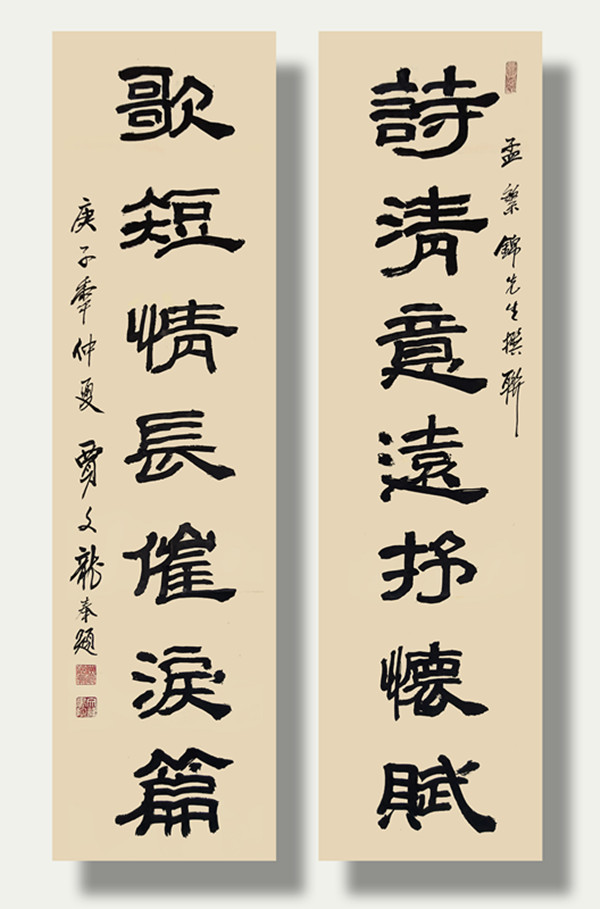 孟繁錦先生撰聯
詩清意遠抒懷賦
歌短情長催淚篇
庚子年仲夏 賈文龍奉題